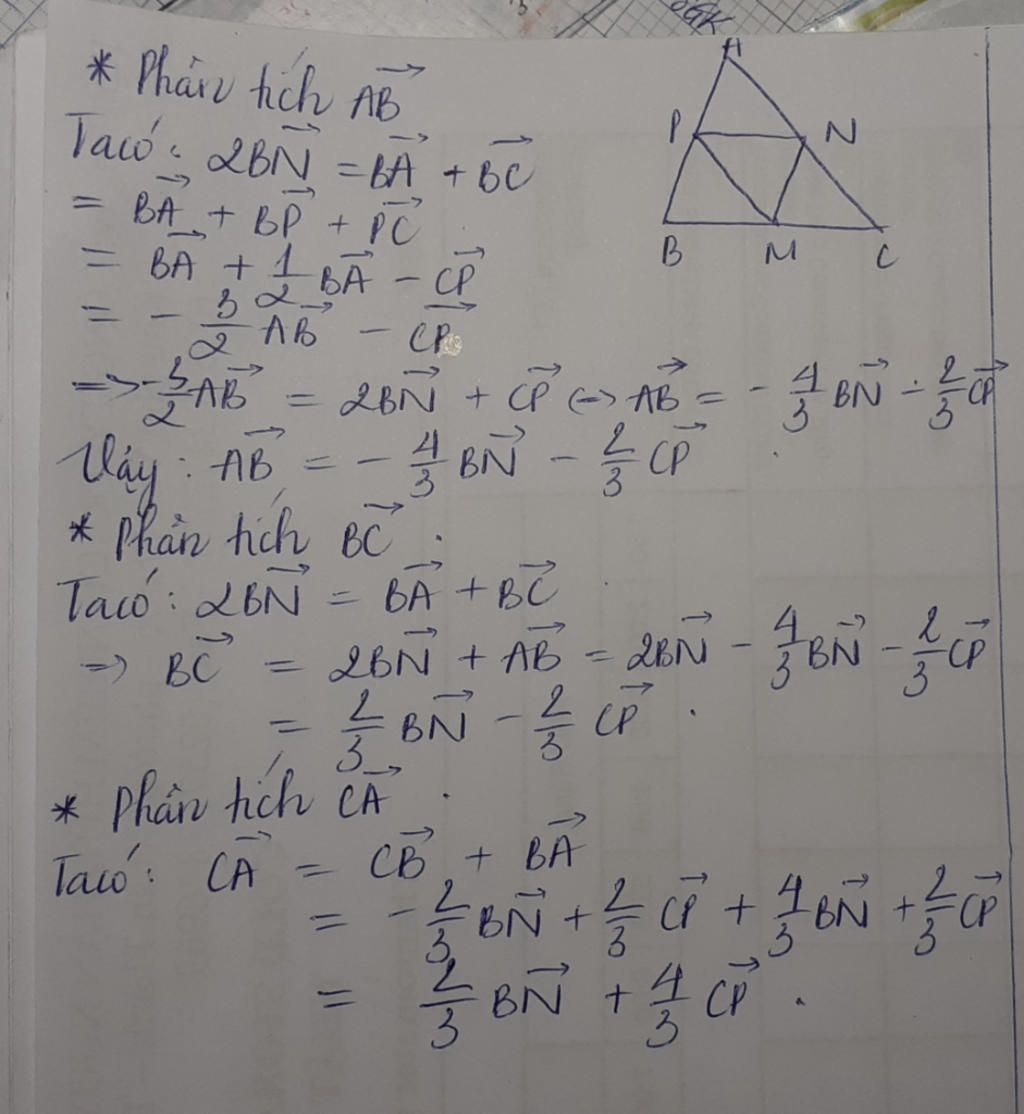 * Phân tích $\overrightarrow{AB}$
Ta có: $2\overrightarrow{BN} = \overrightarrow{BA} + \overrightarrow{BC}$
$= \overrightarrow{BA} + \overrightarrow{BP} + \overrightarrow{PC}$
$= \overrightarrow{BA} + \frac{1}{2}\overrightarrow{BA} - \overrightarrow{CP}$
$= -\frac{3}{2}\overrightarrow{AB} - \overrightarrow{CP}$
$\Rightarrow -\frac{3}{2}\overrightarrow{AB} = 2\overrightarrow{BN} + \overrightarrow{CP} \Leftrightarrow \overrightarrow{AB} = -\frac{4}{3}\overrightarrow{BN} - \frac{2}{3}\overrightarrow{CP}$
Vậy: $\overrightarrow{AB} = -\frac{4}{3}\overrightarrow{BN} - \frac{2}{3}\overrightarrow{CP}$
* Phân tích $\overrightarrow{BC}$.
Ta có: $2\overrightarrow{BN} = \overrightarrow{BA} + \overrightarrow{BC}$
$\Rightarrow \overrightarrow{BC} = 2\overrightarrow{BN} + \overrightarrow{AB} = 2\overrightarrow{BN} - \frac{4}{3}\overrightarrow{BN} - \frac{2}{3}\overrightarrow{CP}$
$= \frac{2}{3}\overrightarrow{BN} - \frac{2}{3}\overrightarrow{CP}$.
* Phân tích $\overrightarrow{CA}$.
Ta có: $\overrightarrow{CA} = \overrightarrow{CB} + \overrightarrow{BA}$
$= -\frac{2}{3}\overrightarrow{BN} + \frac{2}{3}\overrightarrow{CP} + \frac{4}{3}\overrightarrow{BN} + \frac{2}{3}\overrightarrow{CP}$
$= \frac{2}{3}\overrightarrow{BN} + \frac{4}{3}\overrightarrow{CP}$.
A
P N
B M C